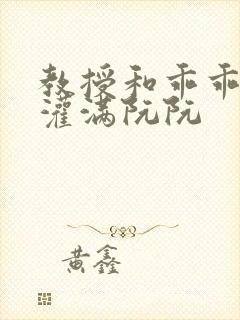 教授和乖乖
灌满阮阮
黄鑫